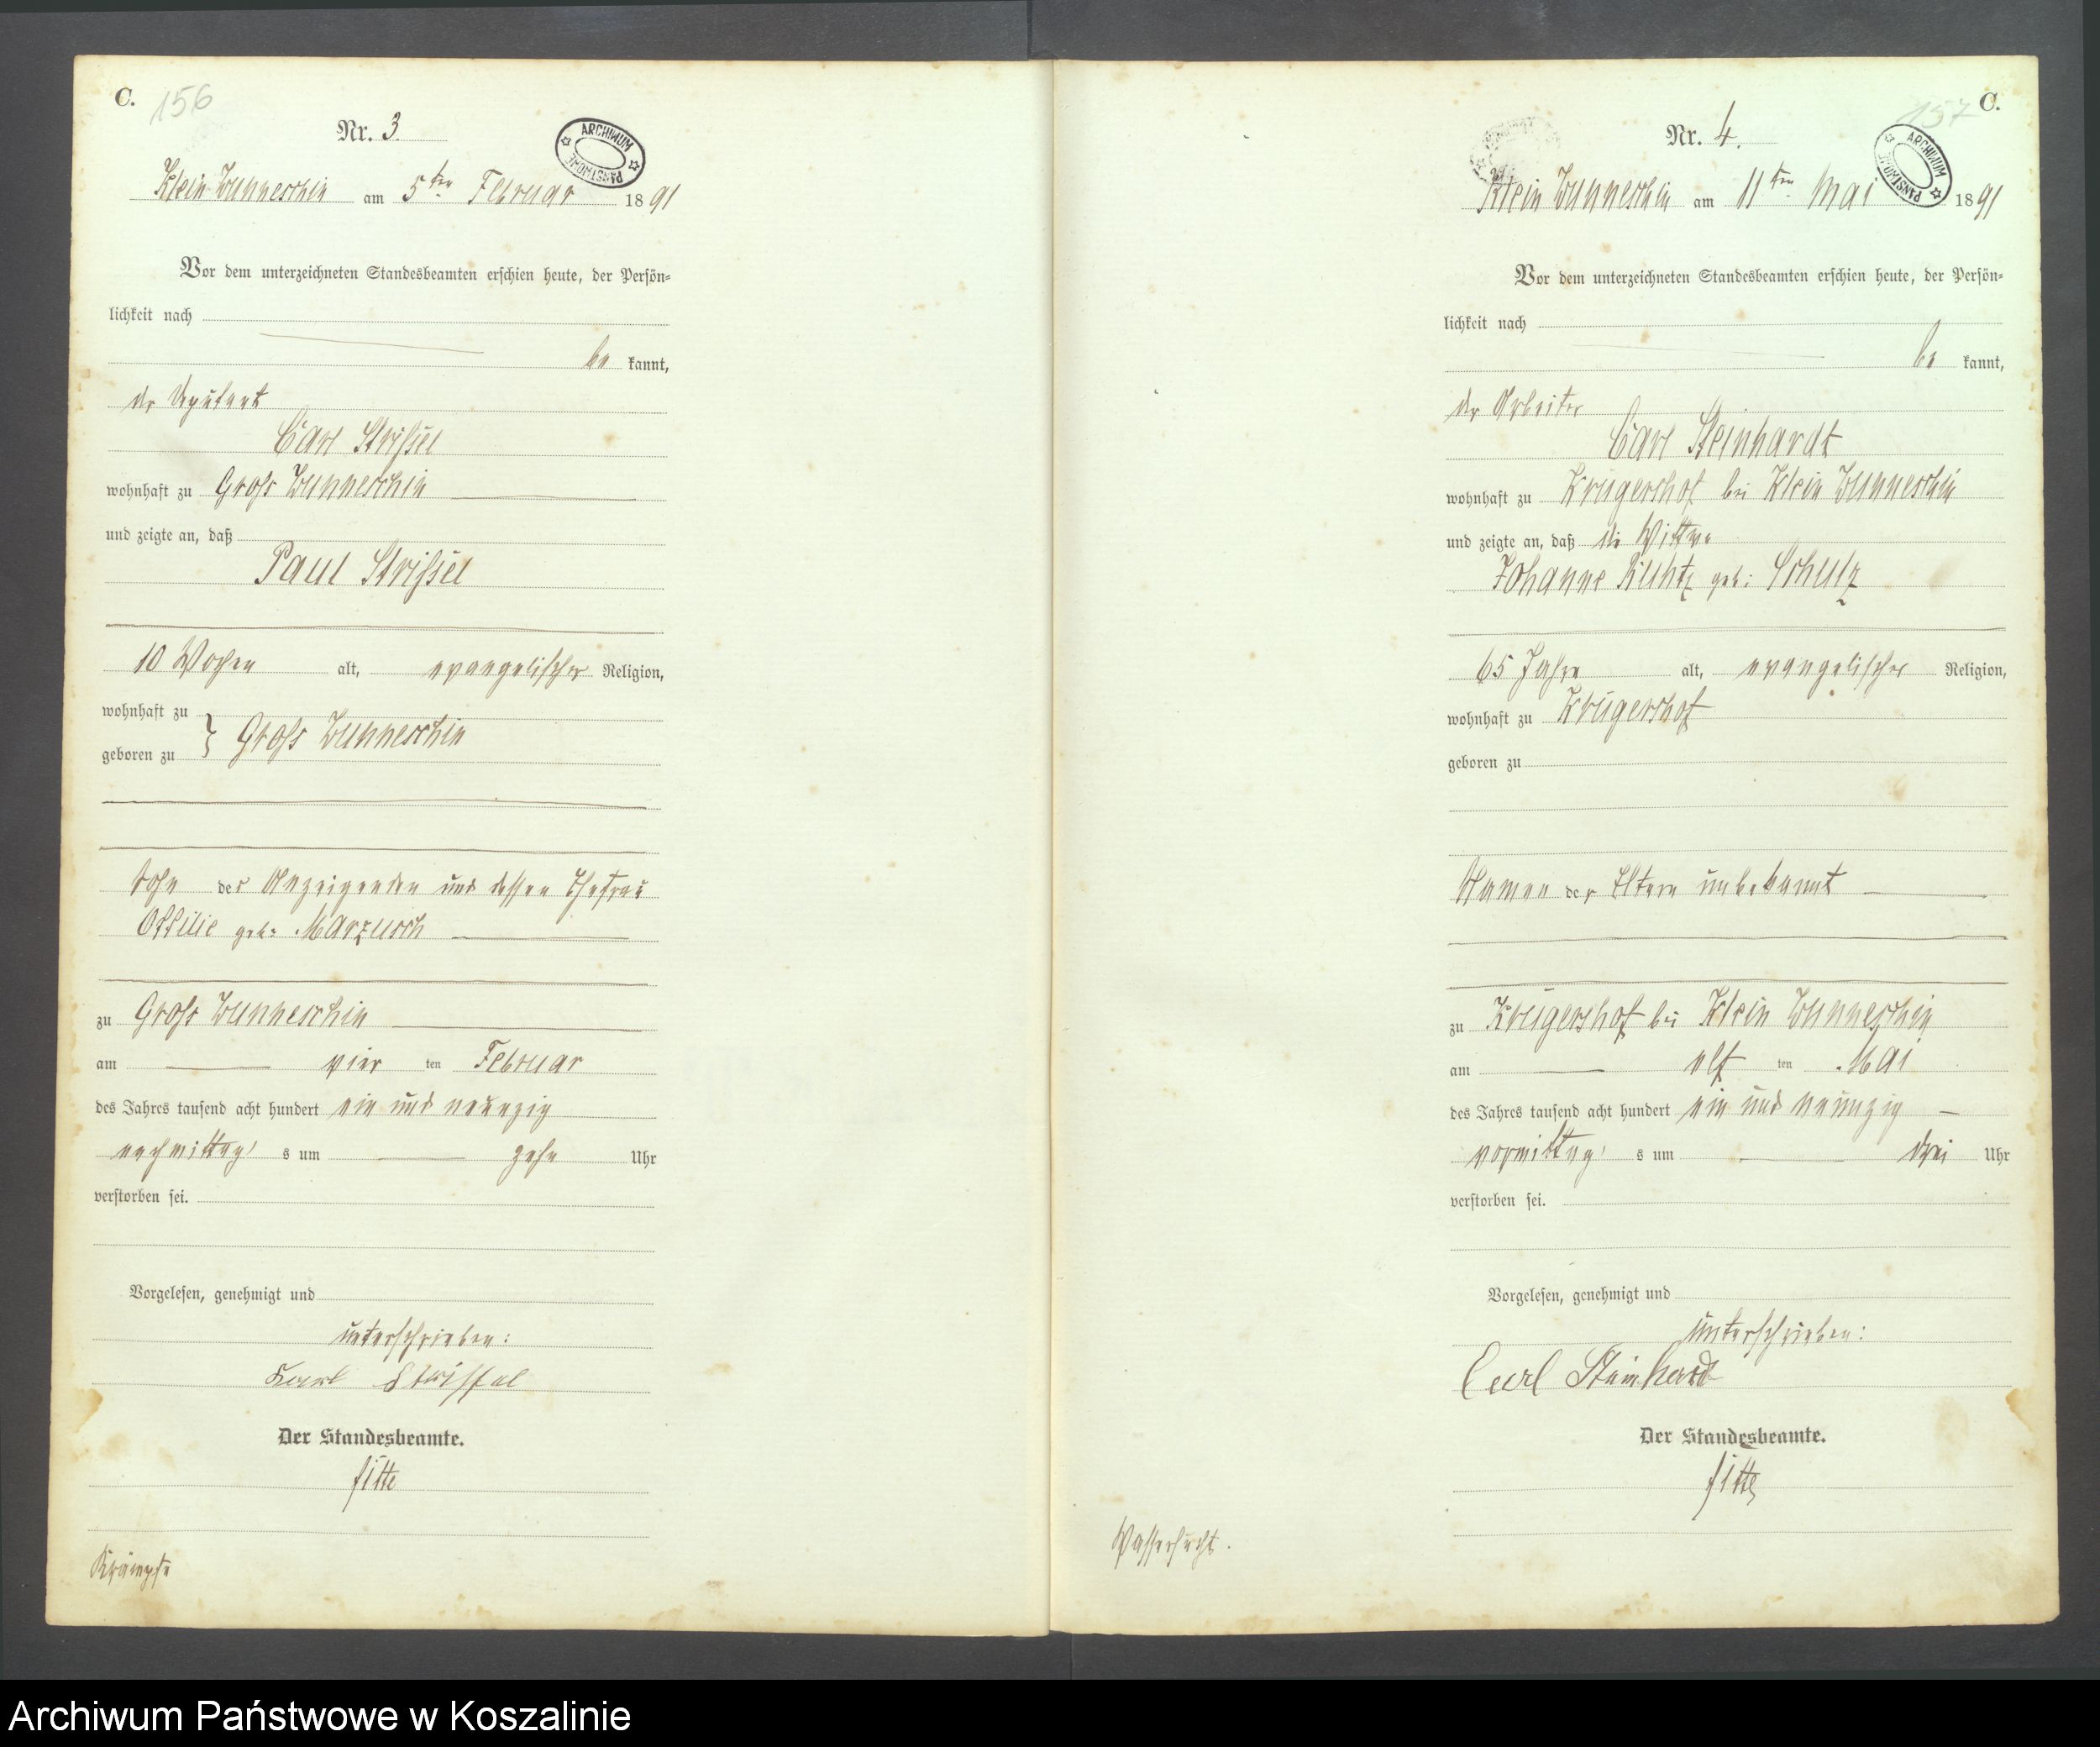 C. 156
Nr. 3
ARCHIWUM PAŃSTWOWE
Klein Wunneschin am 5ten Februar 1891
Vor dem unterzeichneten Standesbeamten erschien heute, der Persön-
lichkeit nach
be kannt,
der Deputant
Carl Strißel
wohnhaft zu Groß Wunneschin
und zeigte an, daß
Paul Strißel
10 Wochen alt, evangelischer Religion,
wohnhaft zu
geboren zu } Groß Wunneschin
Sohn des Anzeigenden und dessen Ehefrau
Ottilie geb: Marzusch
zu Groß Wunneschin
am vier ten Februar
des Jahres tausend acht hundert ein und neunzig
nachmittag s um zehn Uhr
verstorben sei.
Vorgelesen, genehmigt und
unterschrieben:
Karl Strissel
Der Standesbeamte.
Krämpfe
157 C.
Nr. 4.
ARCHIWUM PAŃSTWOWE
Klein Wunneschin am 11ten Mai 1891
Vor dem unterzeichneten Standesbeamten erschien heute, der Persön-
lichkeit nach
be kannt,
der Arbeiter
Carl Steinhardt
wohnhaft zu Krügershof bei Klein Wunneschin
und zeigte an, daß die Wittwe
Johanne Kuhtz geb: Schulz
65 Jahre alt, evangelischer Religion,
wohnhaft zu Krügershof
geboren zu
Namen der Eltern unbekannt
zu Krügershof bei Klein Wunneschin
am elf ten Mai
des Jahres tausend acht hundert ein und neunzig
vormittag s um drei Uhr
verstorben sei.
Vorgelesen, genehmigt und
unterschrieben:
Carl Steinhardt
Der Standesbeamte.
Wassersucht.
Archiwum Państwowe w Koszalinie